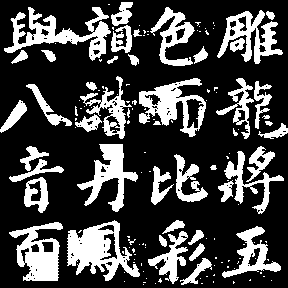 雕龍將五
色而比彩
韻諧丹鳳
與八音而